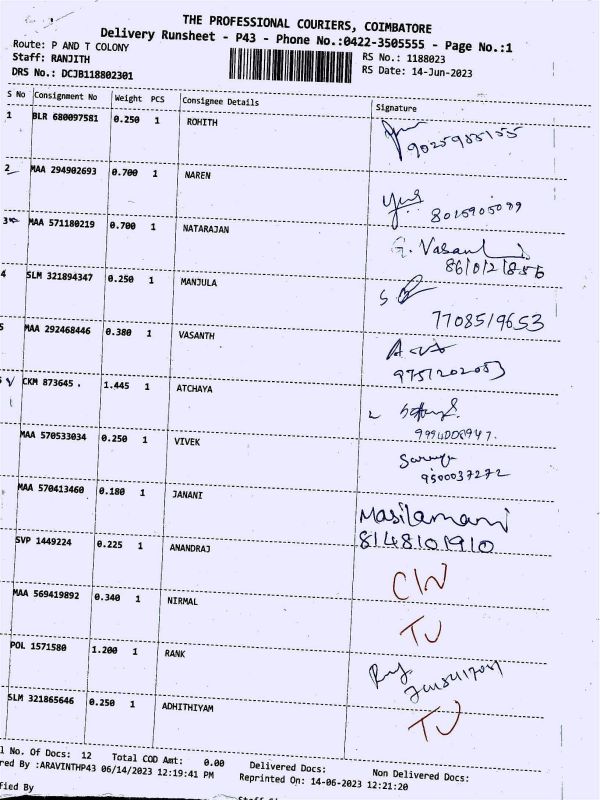 THE PROFESSIONAL COURIERS, COIMBATORE
Delivery Runsheet - P43 - Phone No.:0422-3505555 - Page No.:1
Route: P AND T COLONY
RS No.: 1188023
Staff: RANJITH
RS Date: 14-Jun-2023
DRS No.: DCJB118802301
S No Consignment No Weight PCS Consignee Details Signature
1 BLR 680097581 0.250 1 ROHITH
2 MAA 294902693 0.700 1 NAREN
8015905089
3 MAA 571180219 0.700 1 NATARAJAN
G. Vasan
4 SLM 321894347 0.250 1 MANJULA
7708519653
5 MAA 292468446 0.380 1 VASANTH
9751202053
CKM 873645 . 1.445 1 ATCHAYA
MAA 570533034 0.250 1 VIVEK
9500037272
MAA 570413460 0.180 1 JANANI
Masilamani
8148101910
SVP 1449224 0.225 1 ANANDRAJ
MAA 569419892 0.340 1 NIRMAL
POL 1571580 1.200 1 RANK
SLM 321865646 0.250 1 ADHITHIYAM
l No. Of Docs: 12 Total COD Amt: 0.00 Delivered Docs: Non Delivered Docs:
red By :ARAVINTHP43 06/14/2023 12:19:41 PM Reprinted On: 14-06-2023 12:21:20
fied By